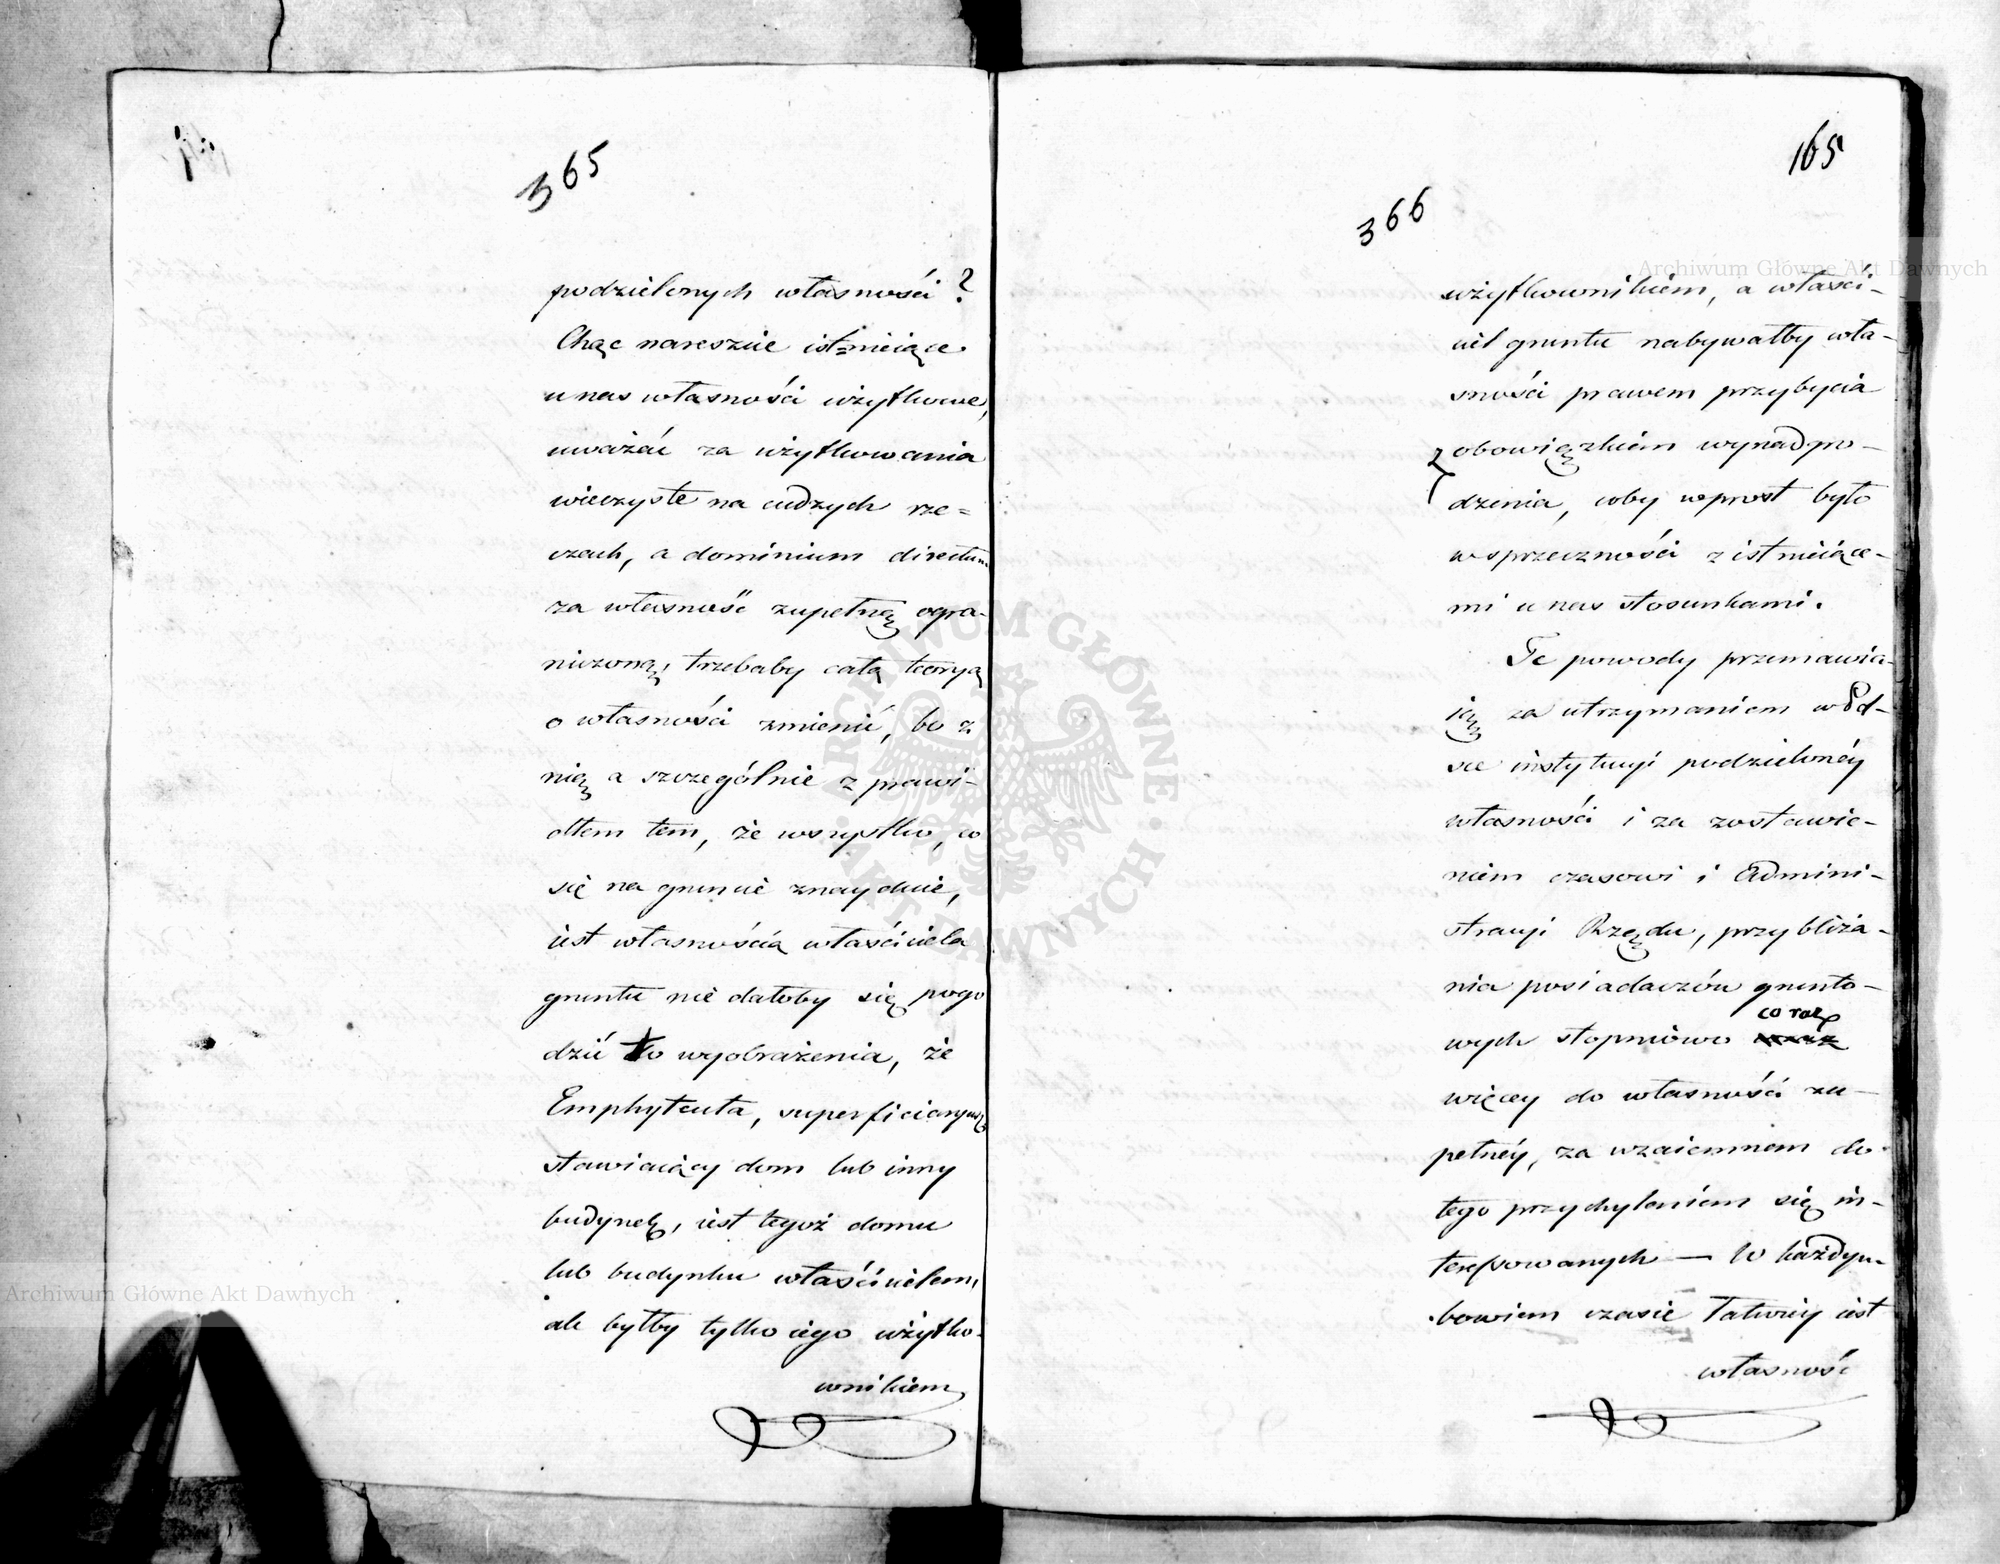 365
podzielonych własności?
Chąc nareszcie istnieiące
u nas własności użytkowe,
uważać za użytkowania
wieczyste na cudzych rze=
czach, a dominium directum
za własność zupełną ogra-
niczoną, trzebaby całą teoryą
o własności zmienić, bo z
nią a szczególnie z prawi-
dłem tem, że wszystko, co
się na gruncie znayduie,
iest własnością właściciela
gruntu nie dałoby się pogo
dzić to wyobrażenia, że
Emphyteuta, superficiaryusz
stawiaiący dom lub inny
budynek, iest tegoż domu
lub budynku właścicielem,
ale byłby tylko iego użytko-
wnikiem
165
366
użytkownikiem, a właści-
ciel gruntu nabywałby wła-
sności prawem przybycia
z obowiązkiem wynadgro-
dzenia, coby wprost było
w sprzeczności z istnieiące-
mi u nas stosunkami.
Te powody przemawia-
ią za utrzymaniem w Pol-
sce instytucyi podzielonéy
własności i za zostawie-
niem czasowi i Admini-
stracyi Rządu, przybliża-
nia posiadaczów grunto-
wych stopniowo coraz
więcey do własności zu-
pełnéy, za wzaiemnem do
tego przychyleniem się in-
teressowanych — W każdym
bowiem czasie łatwiéy iest
własność
Archiwum Główne Akt Dawnych
Archiwum Główne Akt Dawnych
ARCHIWUM GŁÓWNE · AKT DAWNYCH ·